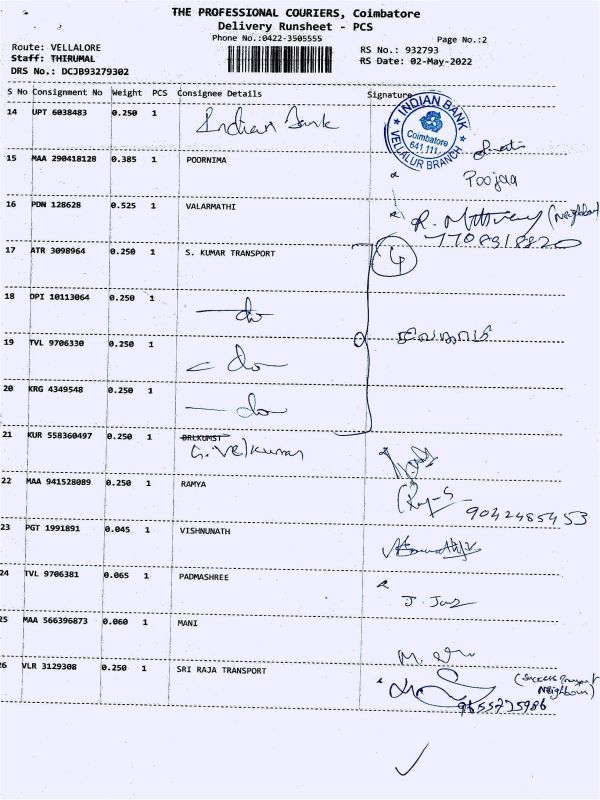 THE PROFESSIONAL COURIERS, Coimbatore
Delivery Runsheet - PCS
Phone No.:0422-3505555
Page No.:2
Route: VELLALORE
RS No.: 932793
Staff: THIRUMAL
RS Date: 02-May-2022
DRS No.: DCJB93279302
S No Consignment No Weight PCS Consignee Details Signature
14 UPT 6038483 0.250 1 Indian Bank
INDIAN BANK
Coimbatore
641 111
VELLALUR BRANCH
15 MAA 290418128 0.385 1 POORNIMA
Poojaa
16 PDN 128628 0.525 1 VALARMATHI
(Neighbour)
7708918820
17 ATR 3098964 0.250 1 S. KUMAR TRANSPORT 4
18 DPI 10113064 0.250 1 do
19 TVL 9706330 0.250 1 do
20 KRG 4349548 0.250 1 do
21 KUR 558360497 0.250 1 BRLKUMST
G. Velkumar
22 MAA 941528089 0.250 1 RAMYA
9042485453
23 PGT 1991891 0.045 1 VISHNUNATH
24 TVL 9706381 0.065 1 PADMASHREE
25 MAA 566396873 0.060 1 MANI
26 VLR 3129308 0.250 1 SRI RAJA TRANSPORT
(Success Transport
Neighbour)
9655775986